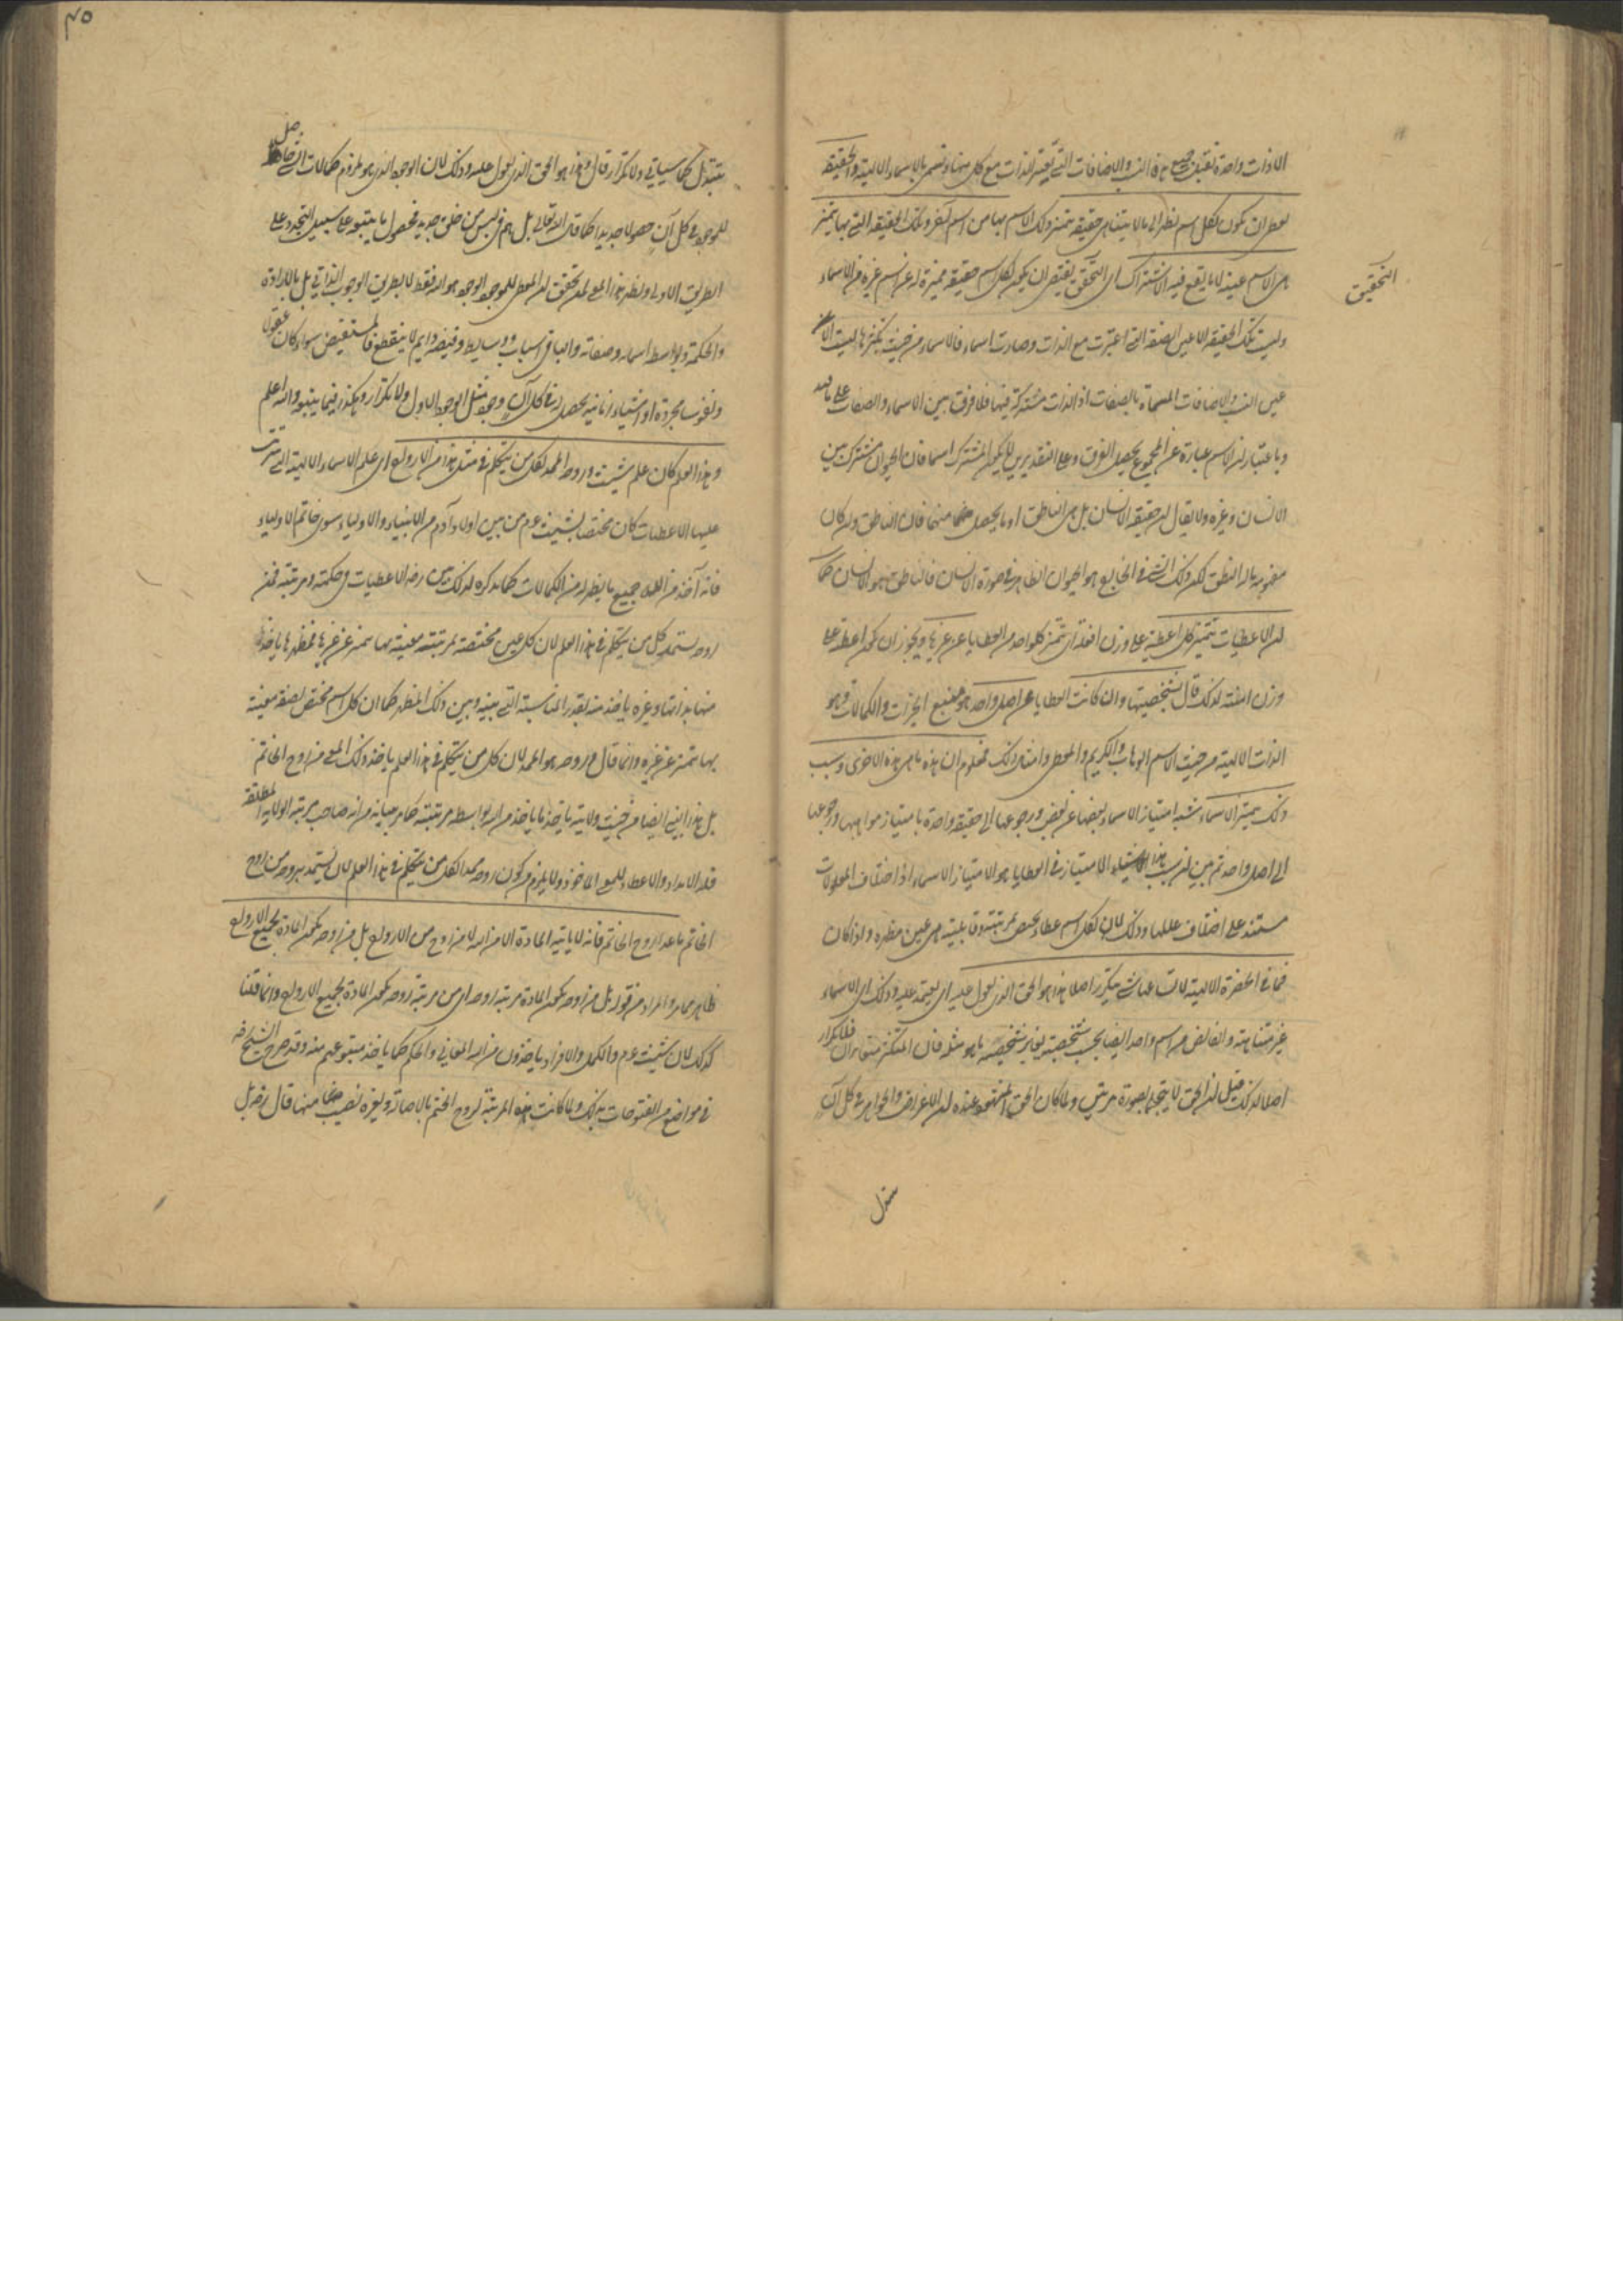 الا ذات واحدة تقبل جميع هذه النسب والاضافات التي تعتبر الذات مع كل منها وتسمى بالاسماء الالهية والحقيقة
تعطى ان يكون لكل اسم يظهر الى ما لا يتناهى حقيقة يتميز ذلك الاسم بها من اسم آخر وتلك الحقيقة التي بها يتميز
هي الاسم عينه لا ما يقع فيه الاشتراك اى التحقيق يقتضى ان يكون لكل اسم حقيقة مميزة له عن اسم غيره من الاسماء
التحقيق
وليست تلك الحقيقة الا عين الصفة التي اعتبرت مع الذات وصارت اسما فالاسماء من حيث تكثرها ليست الا
عين النسب والاضافات المسماة بالصفات اذ الذات مشتركة فيها فلا فرق بين الاسماء والصفات على هذا
وباعتبار ان الاسم عبارة عن المجموع يحصل الفرق وعلى التقديرين لا يكون المشترك اسما فان الحيوان مشترك بين
الانسان وغيره ولا يقال ان حقيقة الانسان بل هي الناطق او ما يحصل منهما فان الناطق وان كان
مفهومه ما له النطق لكن ذلك الشئ في الخارج هو الحيوان الظاهر في صورة الانسان فالناطق هو الانسان كما
ان الاعطيات تتميز كل اعطية على وزن افعلة اى تتميز كل واحد من العطايا عن غيرها ويجوز ان يكون اعطية على
وزن امنية لذلك قال بشخصيتها وان كانت العطايا من اصل واحد هو منبع الخيرات والكمالات وهو
الذات الالهية من حيث الاسم الوهاب والكريم والمعطى وامثال ذلك فمعلوم ان هذه ما هى هذه الاخرى وسبب
ذلك تميز الاسماء شبه امتياز الاسماء بعضها عن بعض ورجوعها الى حقيقة واحدة بامتياز مواهبها ورجوعها
الى اصل واحد ثم بين ان سبب هذا الامتياز في العطايا هو الامتياز الاسماء اذ اختلاف المعلولات
مستند على اختلاف عللها وذلك لان لكل اسم عطاء يختص بمرتبته وقابليته هي عين مظهره ولذا كان
فما في الحضرة الالهية لاتساعها شئ يتكرر اصلا هذا هو الحق الذى يعول عليه اى يعتمد عليه وذلك اى الاسماء
غير متناهية والفائض من اسم واحد ايضا بحسب شخصيته يغاير شخصيته ما هو مثله فان المثلين متغايران فلا تكرار
اصلا لذلك قيل ان الحق لا يتجلى بصورة مرتين ولما كان الحق المشهود عنده ان الاعراض والجواهر في كل آن
تتبدل
تتبدل كما سيأتي ولا تكرار قال وهذا هو الحق الذى يعول عليه وذلك لان الوجود الذى هو ملزوم كمالات
للموجود في كل آن حصولا جديدا كما قال الله تعالى بل هم في لبس من خلق جديد فحصول ما يتبعه على سبيل التجدد على
الطريق الاولى ويظهر هذا المعنى لمن تحقق ان المعطى للموجود الوجود هو الله فقط لا بطريق الوجوب الذاتي بل بالارادة
والحكمة وبواسطة اسمائه وصفاته والباقى اسباب ووسائط وفيضه دايم لا ينقطع فالمستفيض سواء كان عقولا
ونفوسا مجردة او اشياء زمانية يحصل له في كل آن وجود مثل الوجود الاول ولا تكرار وهكذا فيما يتبعه والله اعلم
وهذا العلم كان علم شيث وروحه الممد لكل من يتكلم في مثل هذا من الارواح اى علم الاسماء الالهية التي تترتب
عليها الاعطيات كان مختصا بشيث عم من بين اولاد آدم من الانبياء والاولياء سوى خاتم الاولياء
فانه آخذ من الله جميع ما يظهر له من الكمالات كما يذكره لذلك بين رضه الاعطيات في حكمته ومرتبته فمن
روحه يستمد كل من يتكلم في هذا العلم لان كل عين مختصة بمرتبة معينة بها تتميز عن غيرها فمظهرها يأخذ
منها بذاتها وغيره يأخذ منه بقدر المناسبة التي بينه وبين ذلك المظهر كما ان كل اسم مختص بصفة معينة
بها يتميز عن غيره وانما قال وروحه هو الممد لان كل من يتكلم في هذا العلم يأخذ ذلك المعنى من روح الخاتم
بل هذا النبي ايضا من حيث ولايته يأخذ ما يأخذ من الله بواسطة مرتبته كما مر بيانه من انه صاحب مرتبة الولاية المطلقة
فله الامداد والاعطاء للمعنى المأخوذ ولا يلزم من كون روحه ممدا لكل من يتكلم في هذا العلم لان يستمد بروحه من روح
الخاتم ما عدا روح الخاتم فانه لا يأتيه المادة الا من الله لا من روح من الارواح بل من روحه تكون المادة لجميع الارواح
ظاهر مما مر والمراد من قوله بل من روحه تكون المادة مرتبة روحه اى من مرتبة روحه تكون المادة لجميع الارواح وانما قلنا
كذلك لان شيث عم والكمل والافراد يأخذون من الله المعاني والحكم كما يأخذ متبوعهم منه وقد صرح الشيخ رضه
في مواضع من الفتوحات بذلك ولما كانت هذه المرتبة لروح الختم بالاصالة ولغيره نصيب منها قال رضه بل